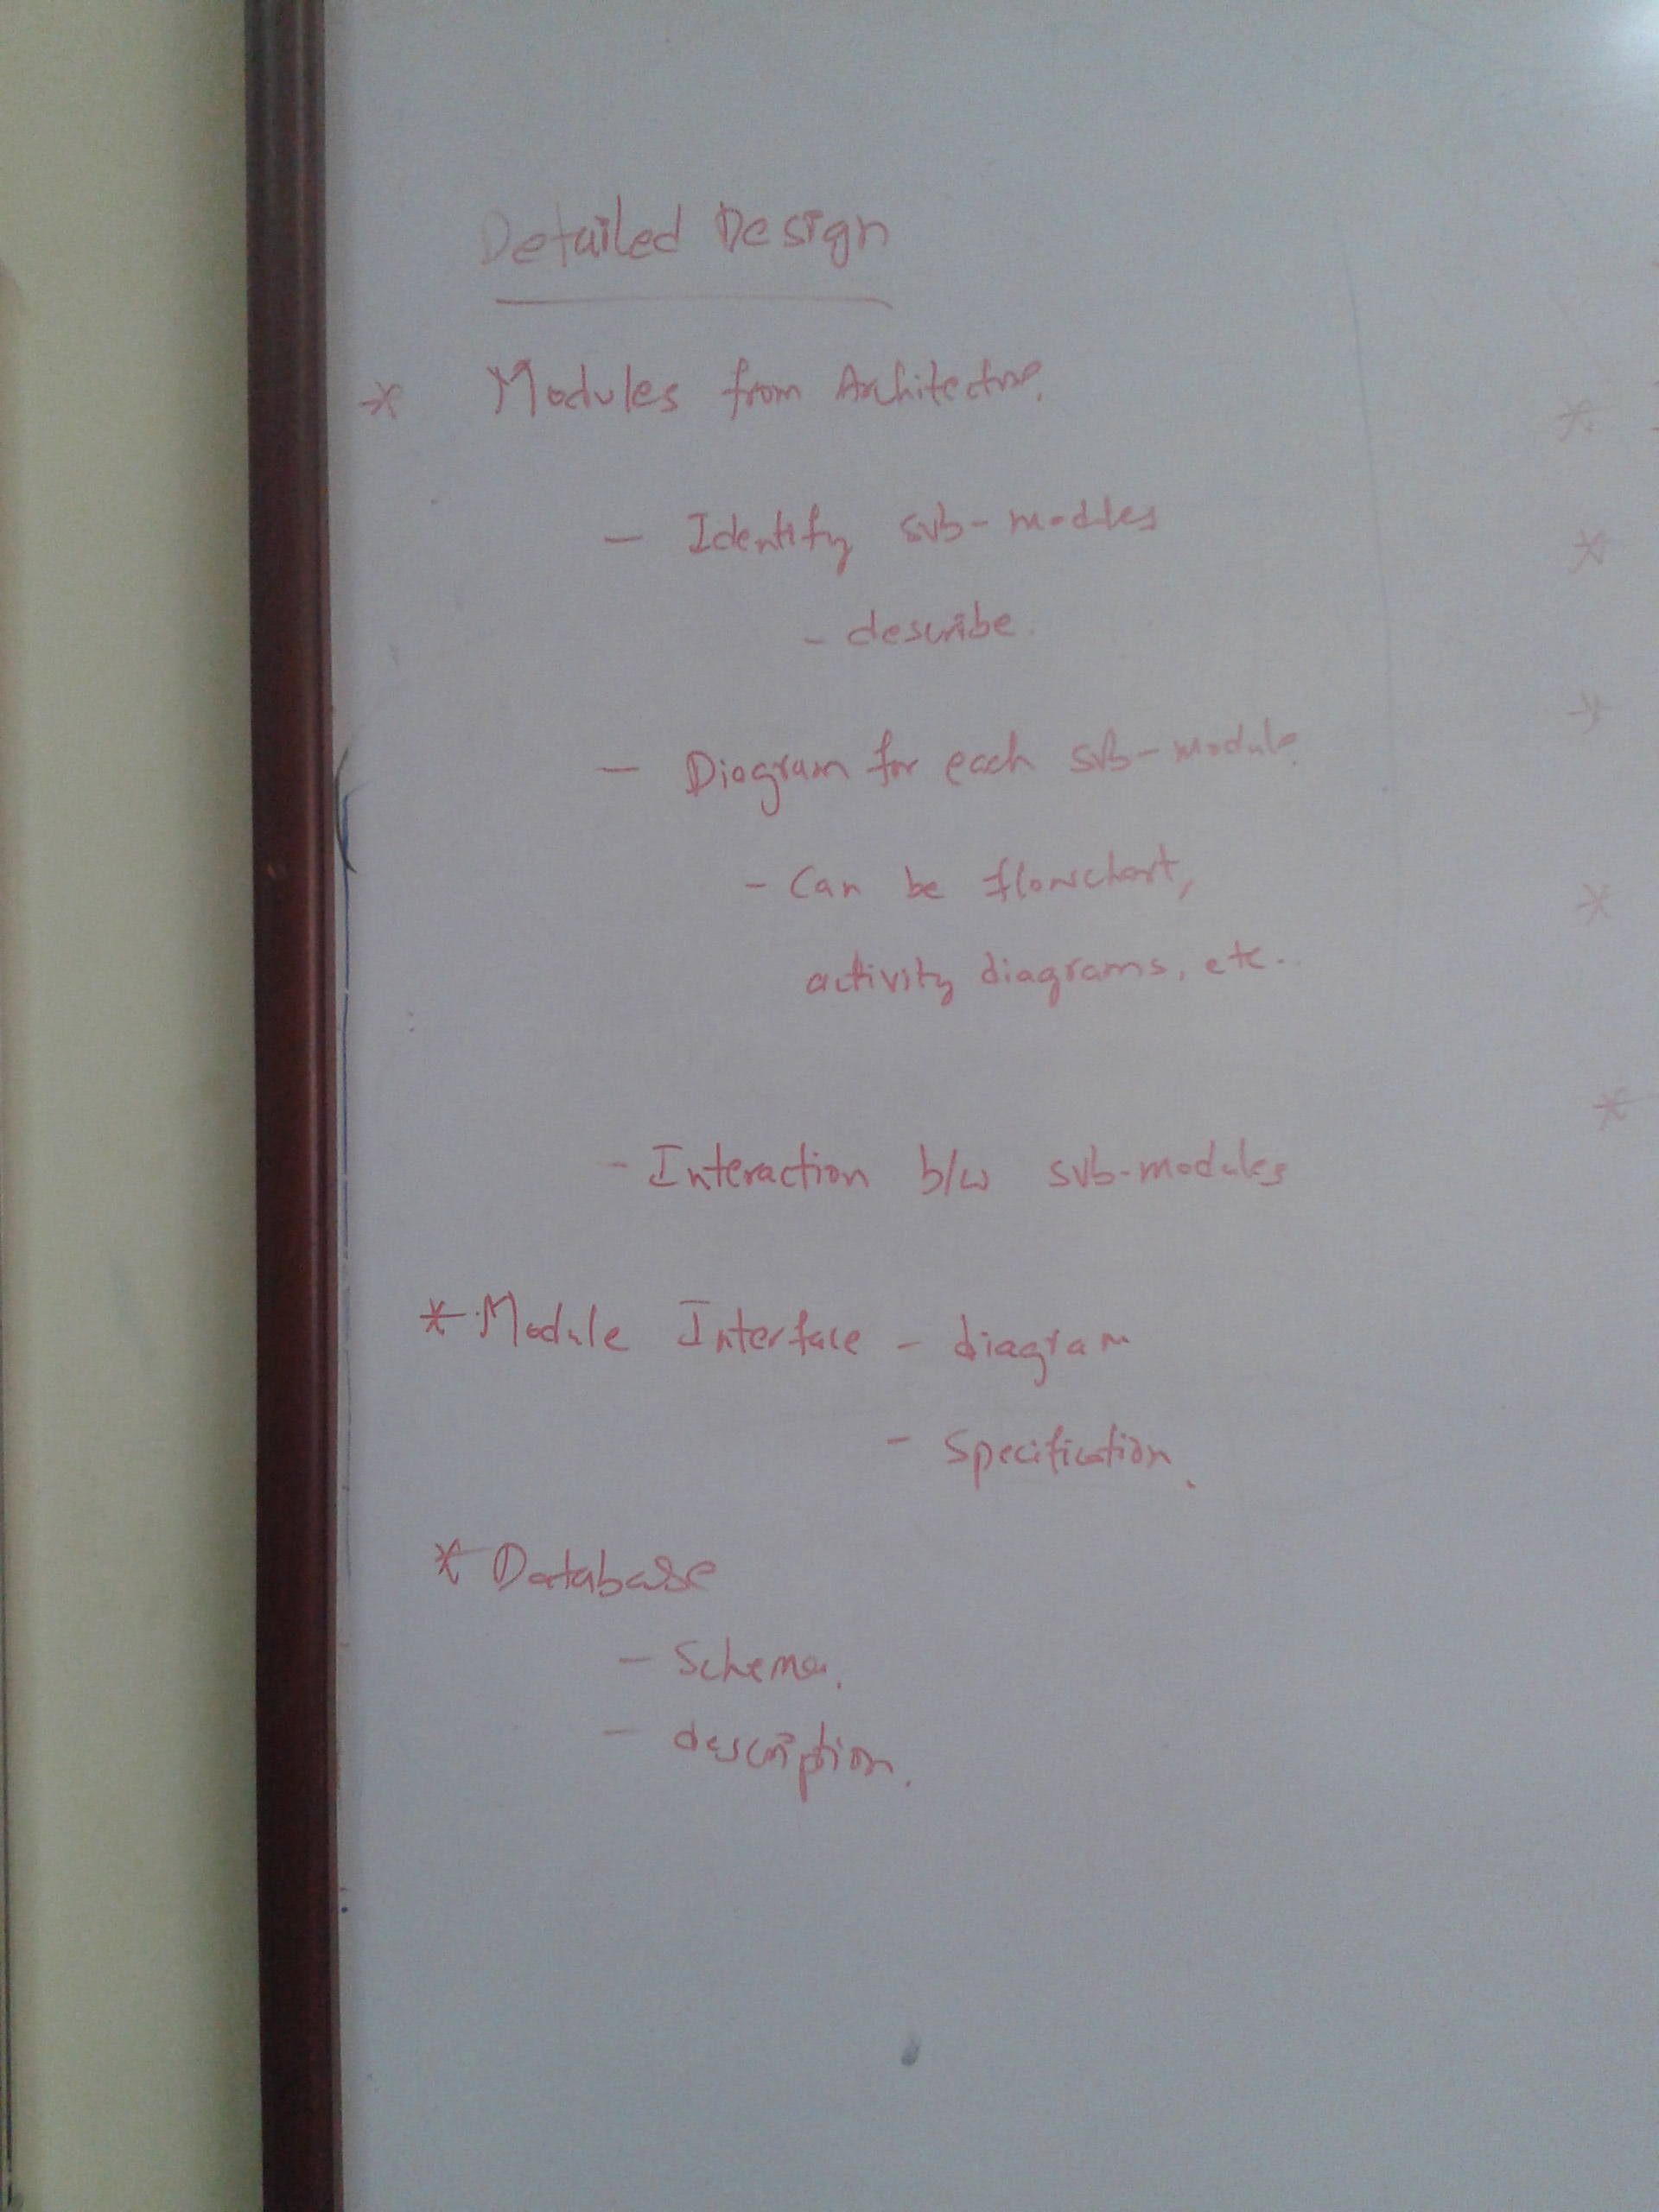 Detailed Design
* Modules from Architecture.
- Identify sub-modules
- describe.
- Diagram for each sub-module.
- Can be flowchart,
activity diagrams, etc..
- Interaction b/w sub-modules
* Module Interface - diagram
- Specification.
* Database
- Schema.
- description.
*
*
*
*
*